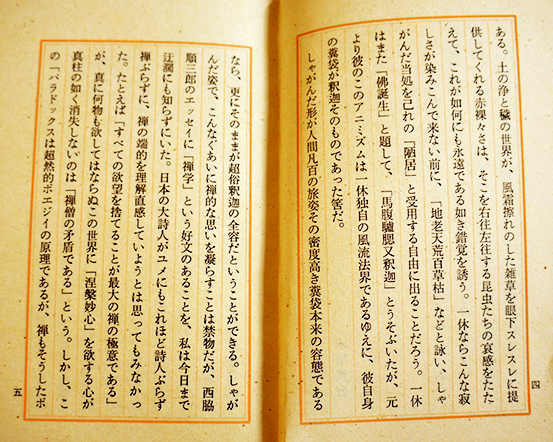 ある。土の浄と穢の世界が、風霜擦れのした雑草を眼下スレスレに提
供してくれる赤裸々さは、そこを右往左往する昆虫たちの哀感をたた
えて、これが如何にも永遠である如き錯覚を誘う。一休ならこんな寂
しさが染みこんで来ない前に、「地老天荒百草枯」などと詠い、しゃ
がんだ当処を己れの「陋居」と受用する自由に出ることだろう。一休
はまた「佛誕生」と題して、「馬腹驢腮又釈迦」とうそぶいたが、元
より彼のこのアニミズムは一休独自の風流法界であるゆえに、彼自身
の糞袋が釈迦そのものであった筈だ。
しゃがんだ形が人間凡百の旅姿その密度高き糞袋本来の容態である
四
なら、更にそのままが超俗釈迦の全容だということができる。しゃが
んだ姿で、こんなぐあいに禅的な思いを凝らすことは禁物だが、西脇
順三郎のエッセイに「禅学」という好文のあることを、私は今日まで
迂濶にも知らずにいた。日本の大詩人がユメにもこれほど詩人ぶらず
禅ぶらずに、禅の端的を理解直感していようとは思ってもみなかっ
た。たとえば「すべての欲望を捨てることが最大の禅の極意である」
が、真に何物も欲してはならぬこの世界に「涅槃妙心」を欲する心が
真柱の如く消失しないのは「禅僧の矛盾である」という。しかし、こ
の「パラドックスは超然的ポエジイの原理であるが、禅もそうしたポ
五